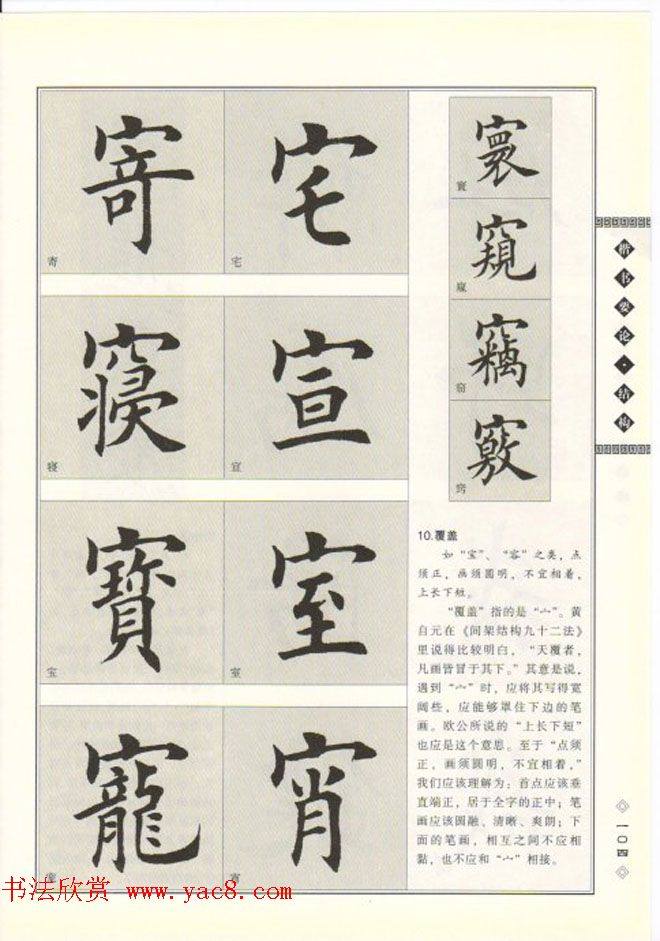 寄
宅
寄
宅
寝
宣
寝
宣
寶
室
宝
室
寵
宵
宵
寰
寰
窺
窥
竊
窃
竅
窍
10.覆盖
如“宝”、“容”之类，点
须正，画须圆明，不宜相着，
上长下短。
“覆盖”指的是“宀”。黄
自元在《间架结构九十二法》
里说得比较明白，“天覆者，
凡画皆冒于其下。”其意是说，
遇到“宀”时，应将其写得宽
阔些，应能够罩住下边的笔
画。欧公所说的“上长下短”
也应是这个意思。至于“点须
正，画须圆明，不宜相着，”
我们应该理解为：首点应该垂
直端正，居于全字的正中；笔
画应该圆融、清晰、爽朗；下
面的笔画，相互之间不应相
黏，也不应和“宀”相接。
楷书要论·结构
一〇四
书法欣赏 www.yac8.com